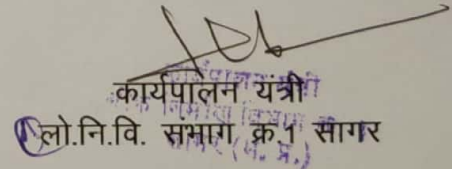 कार्यपालन यंत्री
लो.नि.वि. संभाग क्र.1 सागर